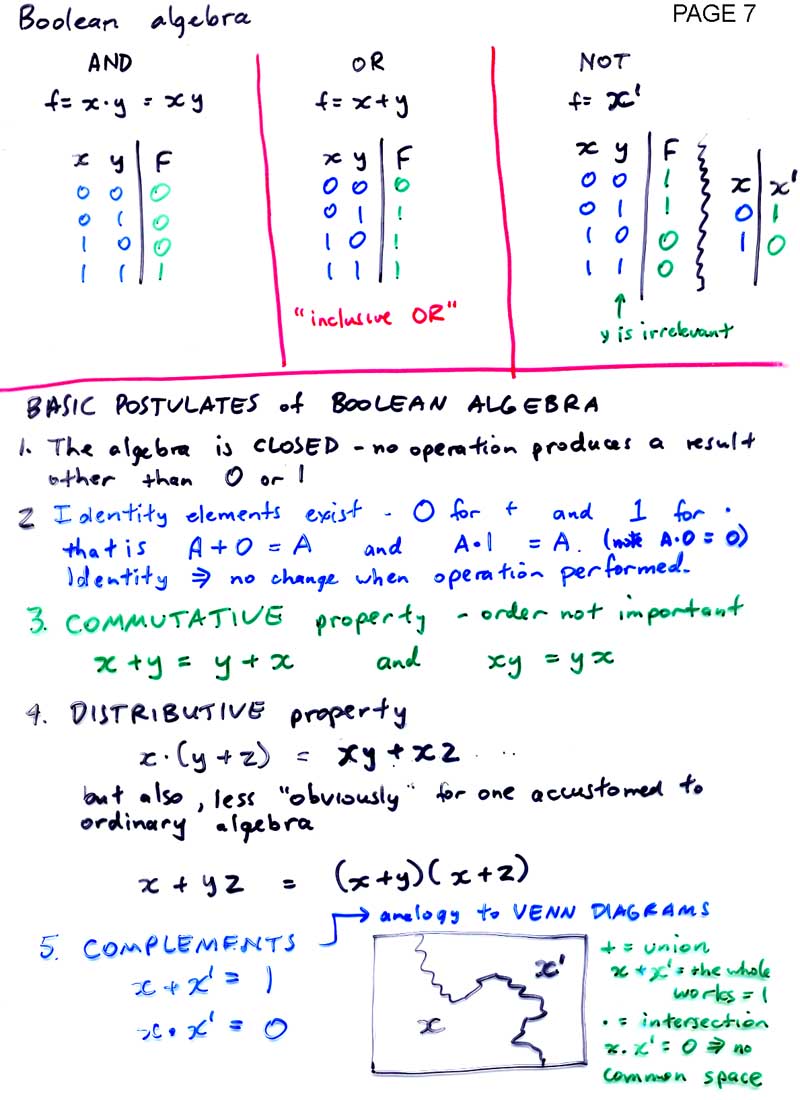 Boolean algebra
PAGE 7
AND
f = x · y = xy
x y F
0 0 0
0 1 0
1 0 0
1 1 1
OR
f = x + y
x y F
0 0 0
0 1 1
1 0 1
1 1 1
"inclusive OR"
NOT
f = x'
x y F
0 0 1
0 1 1
1 0 0
1 1 0
↑
y is irrelevant
x x'
0 1
1 0
BASIC POSTULATES of BOOLEAN ALGEBRA
1. The algebra is CLOSED - no operation produces a result
other than 0 or 1
2 Identity elements exist - 0 for + and 1 for ·
that is A + 0 = A and A·1 = A. (note A·0 = 0)
Identity ⇒ no change when operation performed.
3. COMMUTATIVE property - order not important
x + y = y + x and xy = yx
4. DISTRIBUTIVE property
x·(y + z) = xy + xz ..
but also, less "obviously" for one accustomed to
ordinary algebra
x + yz = (x+y)(x+z)
5. COMPLEMENTS → analogy to VENN DIAGRAMS
x + x' = 1
x · x' = 0
x
x'
+ = union
x + x' = the whole
works = 1
· = intersection
x. x' = 0 ⇒ no
common space